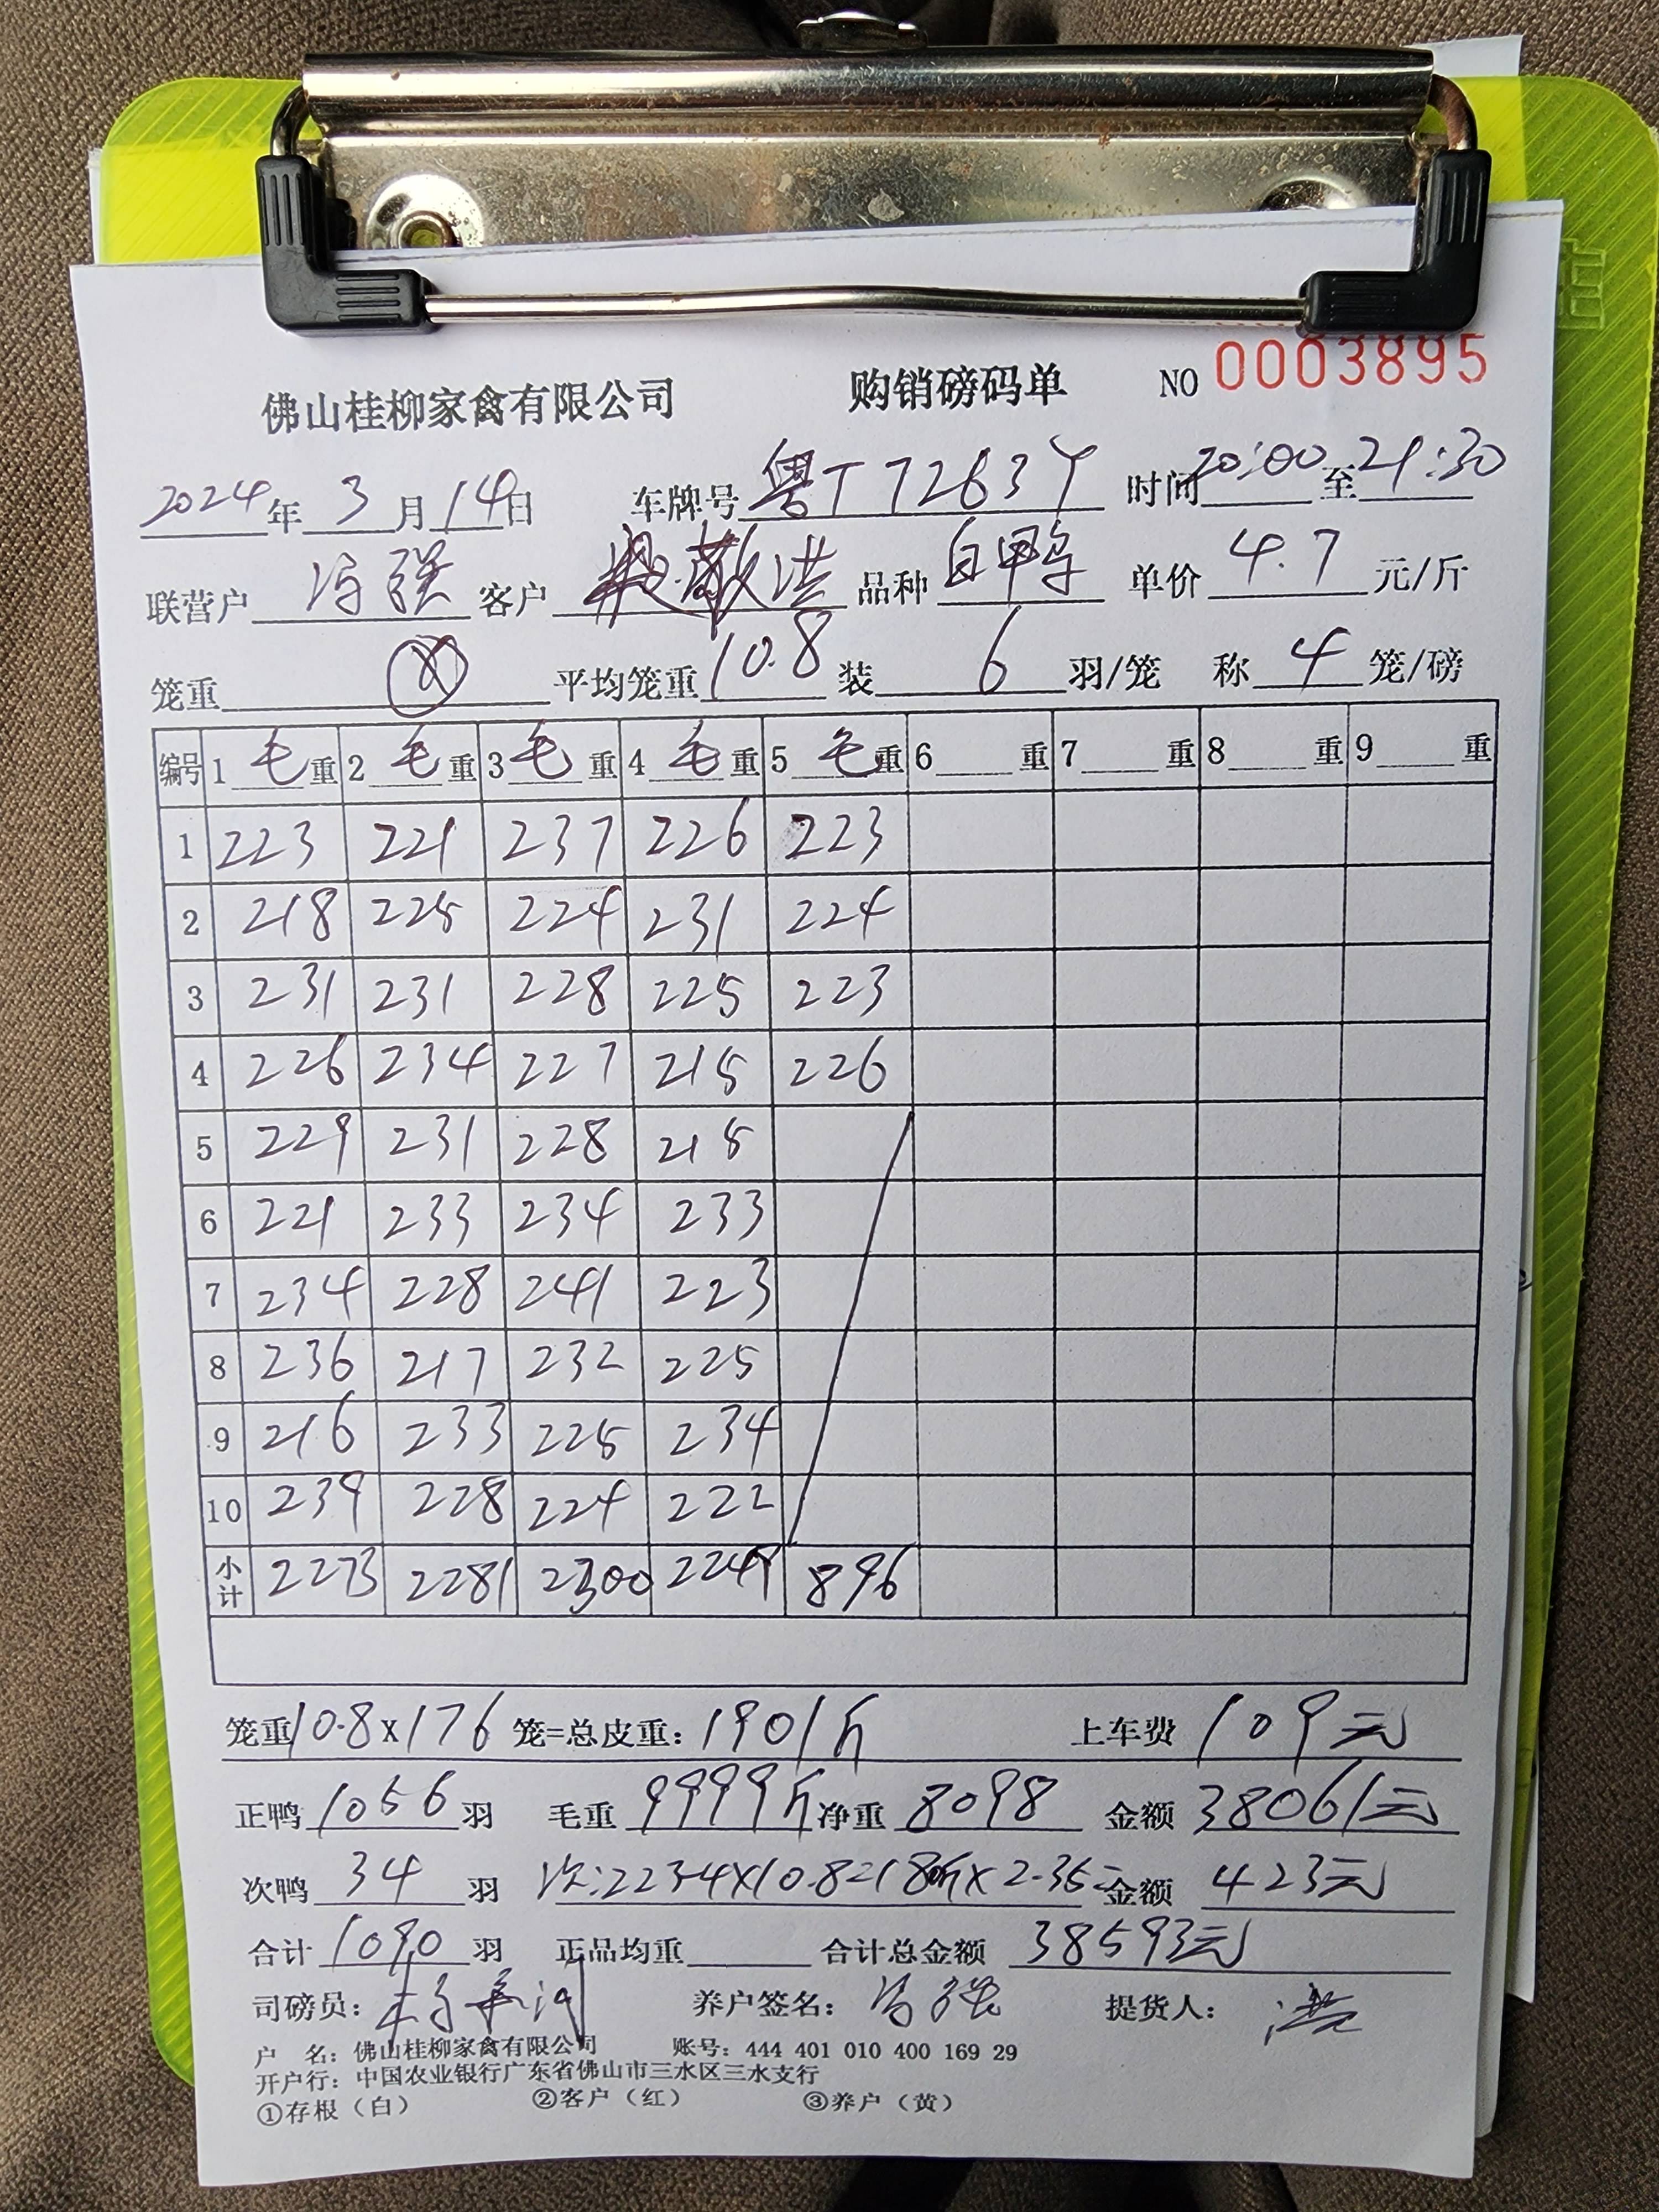 佛山桂柳家禽有限公司 购销磅码单 NO 0003895
2024年3月14日 车牌号粤T7263Y 时间20:00至21:30
联营户冯强 客户敬洪 品种白鸭 单价4.7元/斤
笼重 平均笼重10.8装6羽/笼 称4笼/磅
编号 1毛重 2毛重 3毛重 4毛重 5毛重 6重 7重 8重 9重
1 223 221 237 226 223
2 218 225 224 231 224
3 231 231 228 225 223
4 226 234 227 215 226
5 229 231 228 215
6 221 233 234 233
7 234 228 241 223
8 236 217 232 225
9 216 233 225 234
10 239 228 224 222
小计 2273 2281 2300 2249 896
笼重10.8x176笼=总皮重:1901斤 上车费109元
正鸭1056羽 毛重9999斤 净重8098 金额38061元
次鸭34羽 次:223-4X10.8=180斤X2.35= 金额423元
合计1090羽 正品均重 合计总金额38593元
司磅员: 养户签名:冯强 提货人:洪
户 名:佛山桂柳家禽有限公司 账号:444 401 010 400 169 29
开户行:中国农业银行广东省佛山市三水区三水支行
①存根(白) ②客户(红) ③养户(黄)